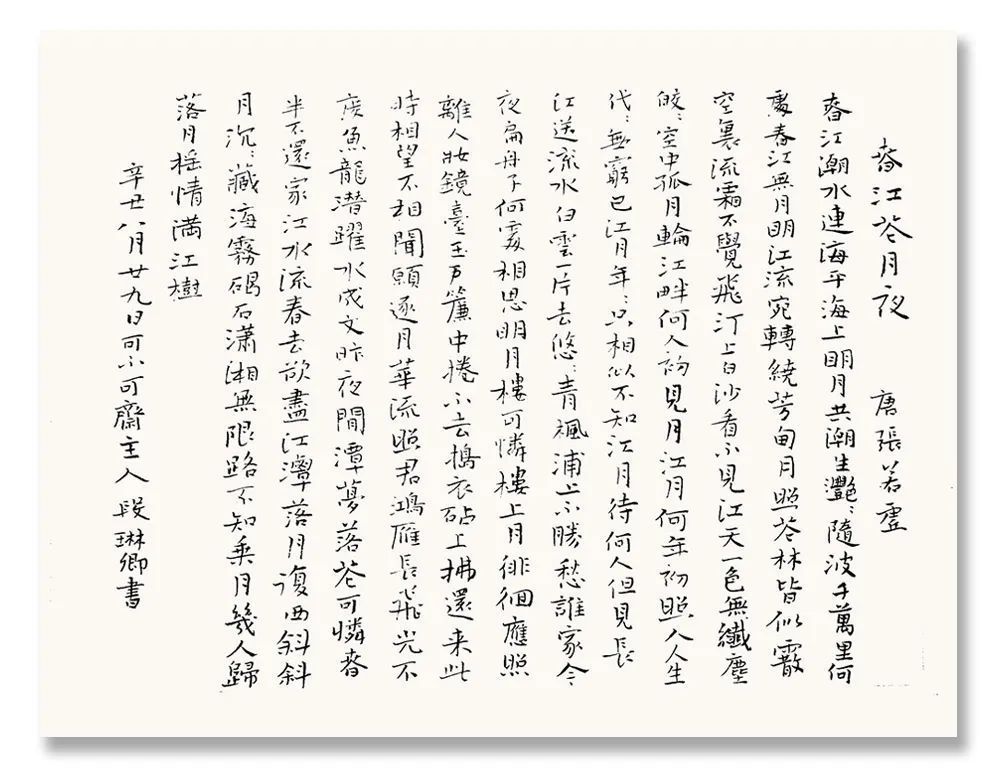 春江花月夜　唐張若虛
春江潮水連海平海上明月共潮生灧〻隨波千萬里何
處春江無月明江流宛轉繞芳甸月照花林皆似霰
空裏流霜不覺飛汀上白沙看不見江天一色無纖塵
皎〻空中孤月輪江畔何人初見月江月何年初照人人生
代〻無窮已江月年〻只相似不知江月待何人但見長
江送流水白雲一片去悠〻青楓浦上不勝愁誰家今
夜扁舟子何處相思明月樓可憐樓上月徘徊應照
離人妝鏡臺玉戶簾中捲不去擣衣砧上拂還来此
時相望不相聞願逐月華流照君鴻雁長飛光不
度魚龍潛躍水成文昨夜閒潭夢落花可憐春
半不還家江水流春去欲盡江潭落月復西斜斜
月沉〻藏海霧碣石瀟湘無限路不知乘月幾人歸
落月搖情滿江樹
辛丑八月廿九日可不可齋主人段琳卿書